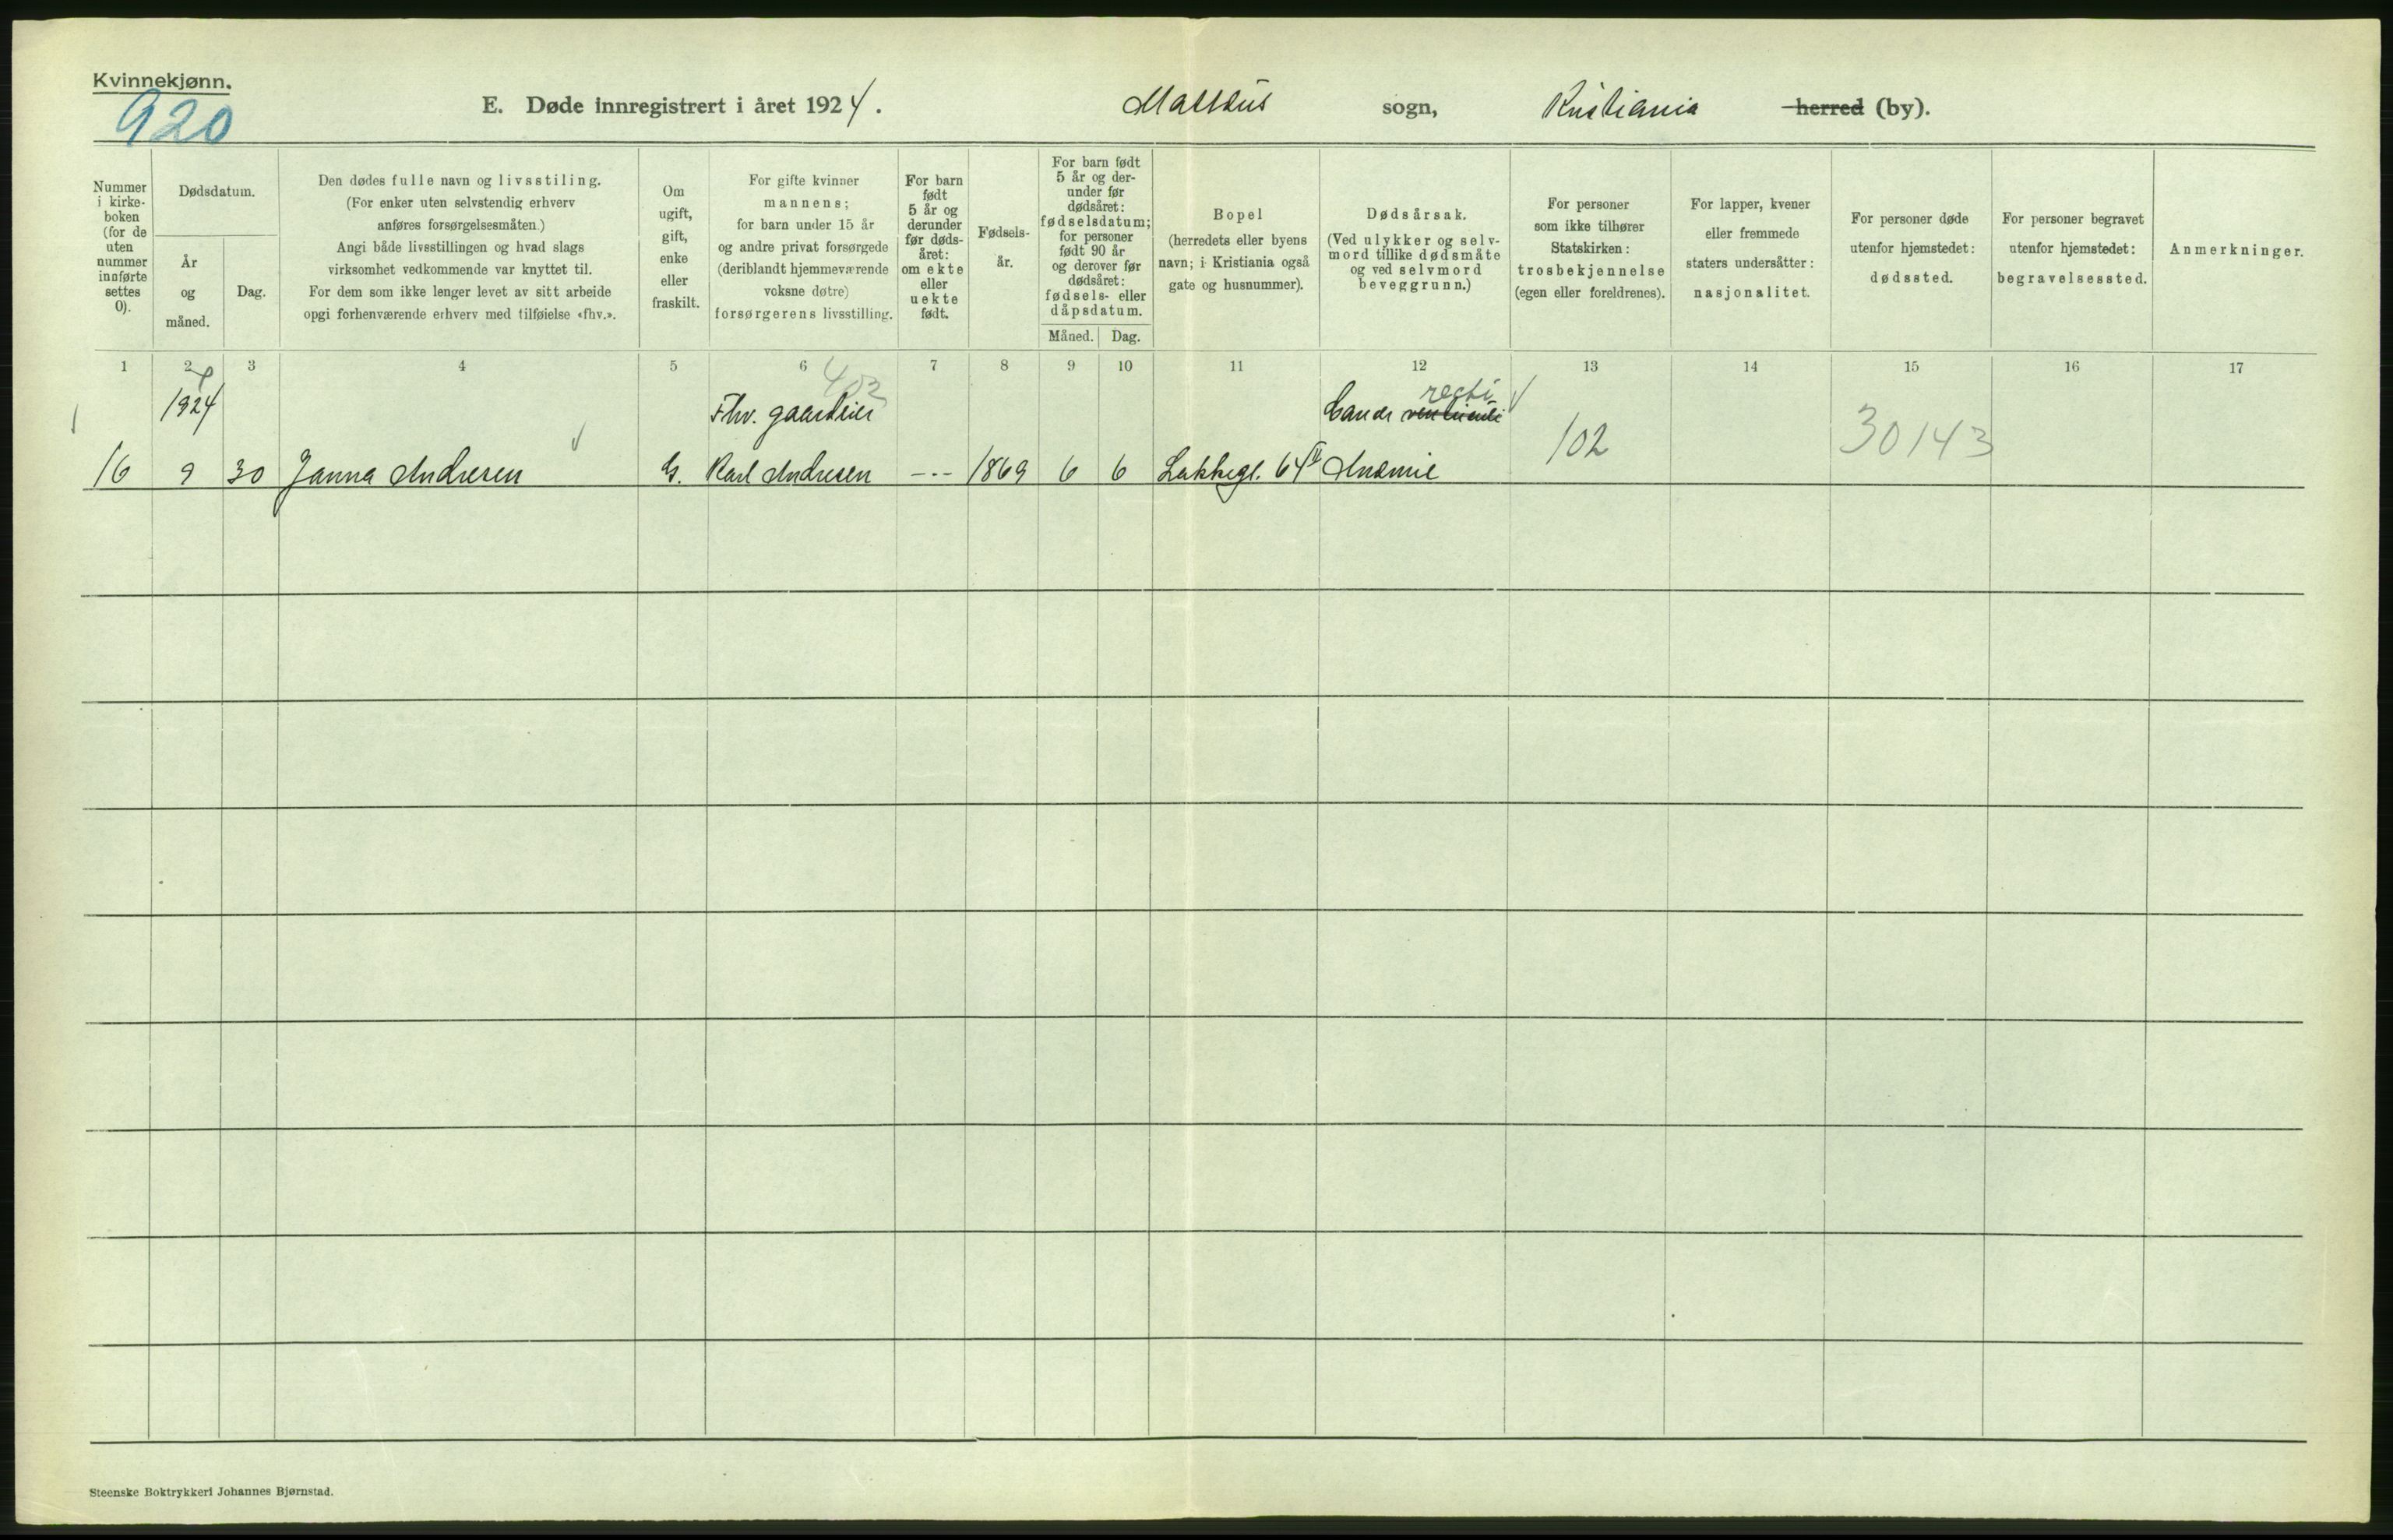 Kvinnekjønn.
920
E. Døde innregistrert i året 1924. Mattæus sogn, Kristiania herred (by).
Nummer i kirke-boken (for de uten nummer innførte settes 0).
Dødsdatum.
År og måned.
Dag.
Den dødes fulle navn og livsstiling.
(For enker uten selvstendig erhverv
anføres forsørgelsesmåten.)
Angi både livsstillingen og hvad slags
virksomhet vedkommende var knyttet til.
For dem som ikke lenger levet av sitt arbeide
opgi forhenværende erhverv med tilføielse «fhv.».
Om
ugift,
gift,
enke
eller
fraskilt.
For gifte kvinner
mannens;
for barn under 15 år
og andre privat forsørgede
(deriblandt hjemmeværende
voksne døtre)
forsørgerens livsstilling.
For barn
født
5 år og
derunder
før døds-
året:
om ekte
eller
uekte
født.
Fødsels-
år.
For barn født
5 år og der-
under før
dødsåret:
fødselsdatum;
for personer
født 90 år
og derover før
dødsåret:
fødsels- eller
dåpsdatum.
Måned. Dag.
Bopel
(herredets eller byens
navn; i Kristiania også
gate og husnummer).
Dødsårsak.
(Ved ulykker og selv-
mord tillike dødsmåte
og ved selvmord
beveggrunn.)
For personer
som ikke tilhører
Statskirken:
trosbekjennelse
(egen eller foreldrenes).
For lapper, kvener
eller fremmede
staters undersåtter:
nasjonalitet.
For personer døde
utenfor hjemstedet:
dødssted.
For personer begravet
utenfor hjemstedet:
begravelsessted.
Anmerkninger.
1 2 3 4 5 6 7 8 9 10 11 12 13 14 15 16 17
403
recti
1924 Fhv. gaardeier Cancr
102 30143
16 9 30 Janna Andresen G. Karl Andresen --- 1869 6 6 Lakkegt. 64 Anæmie
Steenske Boktrykkeri Johannes Bjørnstad.